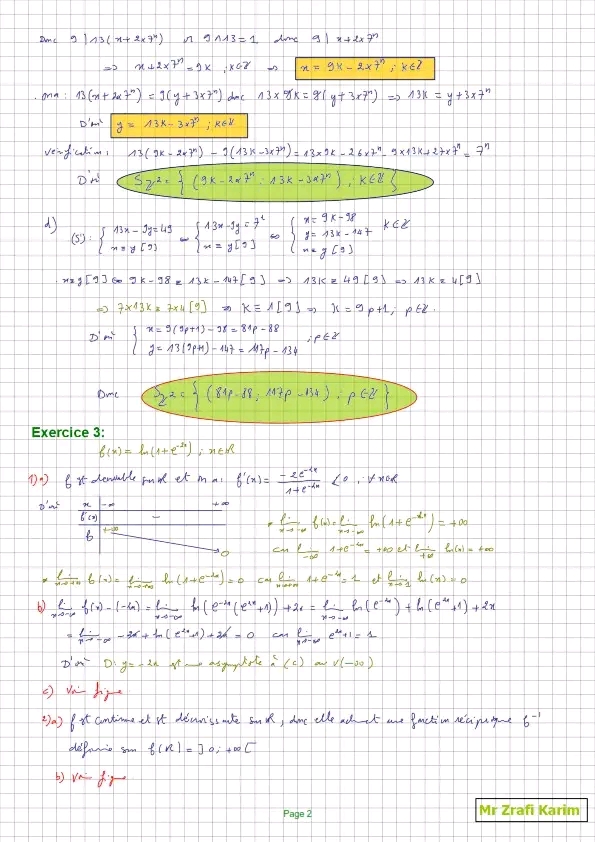 Donc 9 | 13(x + 2x7ⁿ) or 9∧13 = 1 donc 9 | x + 2x7ⁿ
⇒ x + 2x7ⁿ = 9k ; k∈ℤ ⇒ x = 9k - 2x7ⁿ ; k∈ℤ
. on a : 13(x + 2x7ⁿ) = 9(y + 3x7ⁿ) donc 13 x 9k = 9(y + 3x7ⁿ) ⇒ 13k = y + 3x7ⁿ
D'où y = 13k - 3x7ⁿ ; k∈ℤ
Vérification : 13(9k - 2x7ⁿ) - 9(13k - 3x7ⁿ) = 13x9k - 26x7ⁿ - 9x13k + 27x7ⁿ = 7ⁿ
D'où Sℤ² = { (9k - 2x7ⁿ ; 13k - 3x7ⁿ) ; k∈ℤ }
d) (S) : { 13x - 9y = 49 ; x ≡ y [9] ⇔ { 13x - 9y = 7² ; x ≡ y [9] ⇔ { x = 9k - 98 ; y = 13k - 147 ; x ≡ y [9] k∈ℤ
x ≡ y [9] ⇔ 9k - 98 ≡ 13k - 147 [9] ⇒ 13k ≡ 49 [9] ⇒ 13k ≡ 4 [9]
⇒ 7x13k ≡ 7x4 [9] ⇒ k ≡ 1 [9] ⇒ k = 9p + 1 ; p∈ℤ.
D'où { x = 9(9p+1) - 98 = 81p - 88
y = 13(9p+1) - 147 = 117p - 134 ; p∈ℤ
Donc Sℤ² = { (81p - 88 ; 117p - 134) ; p∈ℤ }
Exercice 3:
f(x) = ln(1 + e⁻²ˣ) ; x∈ℝ
1) a) f est dérivable sur ℝ et on a : f'(x) = -2e⁻²ˣ / (1 + e⁻²ˣ) < 0 ; ∀x∈ℝ
D'où x -∞ +∞
f'(x) -
f +∞ 0
* lim x→-∞ f(x) = lim x→-∞ ln(1 + e⁻²ˣ) = +∞
car lim -∞ 1 + e⁻²ˣ = +∞ et lim +∞ ln(x) = +∞
* lim x→+∞ f(x) = lim x→+∞ ln(1 + e⁻²ˣ) = 0 car lim x→+∞ 1 + e⁻²ˣ = 1 et lim x→1 ln(x) = 0
b) lim x→-∞ f(x) - (-2x) = lim x→-∞ ln(e⁻²ˣ(e²ˣ + 1)) + 2x = lim x→-∞ ln(e⁻²ˣ) + ln(e²ˣ + 1) + 2x
= lim x→-∞ -2x + ln(e²ˣ + 1) + 2x = 0 car lim x→-∞ e²ˣ + 1 = 1
D'où D : y = -2x est une asymptote à (C) au v(-∞)
c) Voir figure
2) a) f est continue et st décroissante sur ℝ, donc elle admet une fonction réciproque f⁻¹
définie sur f(ℝ) = ]0 ; +∞[
b) Voir figure
Page 2
Mr Zrafi Karim